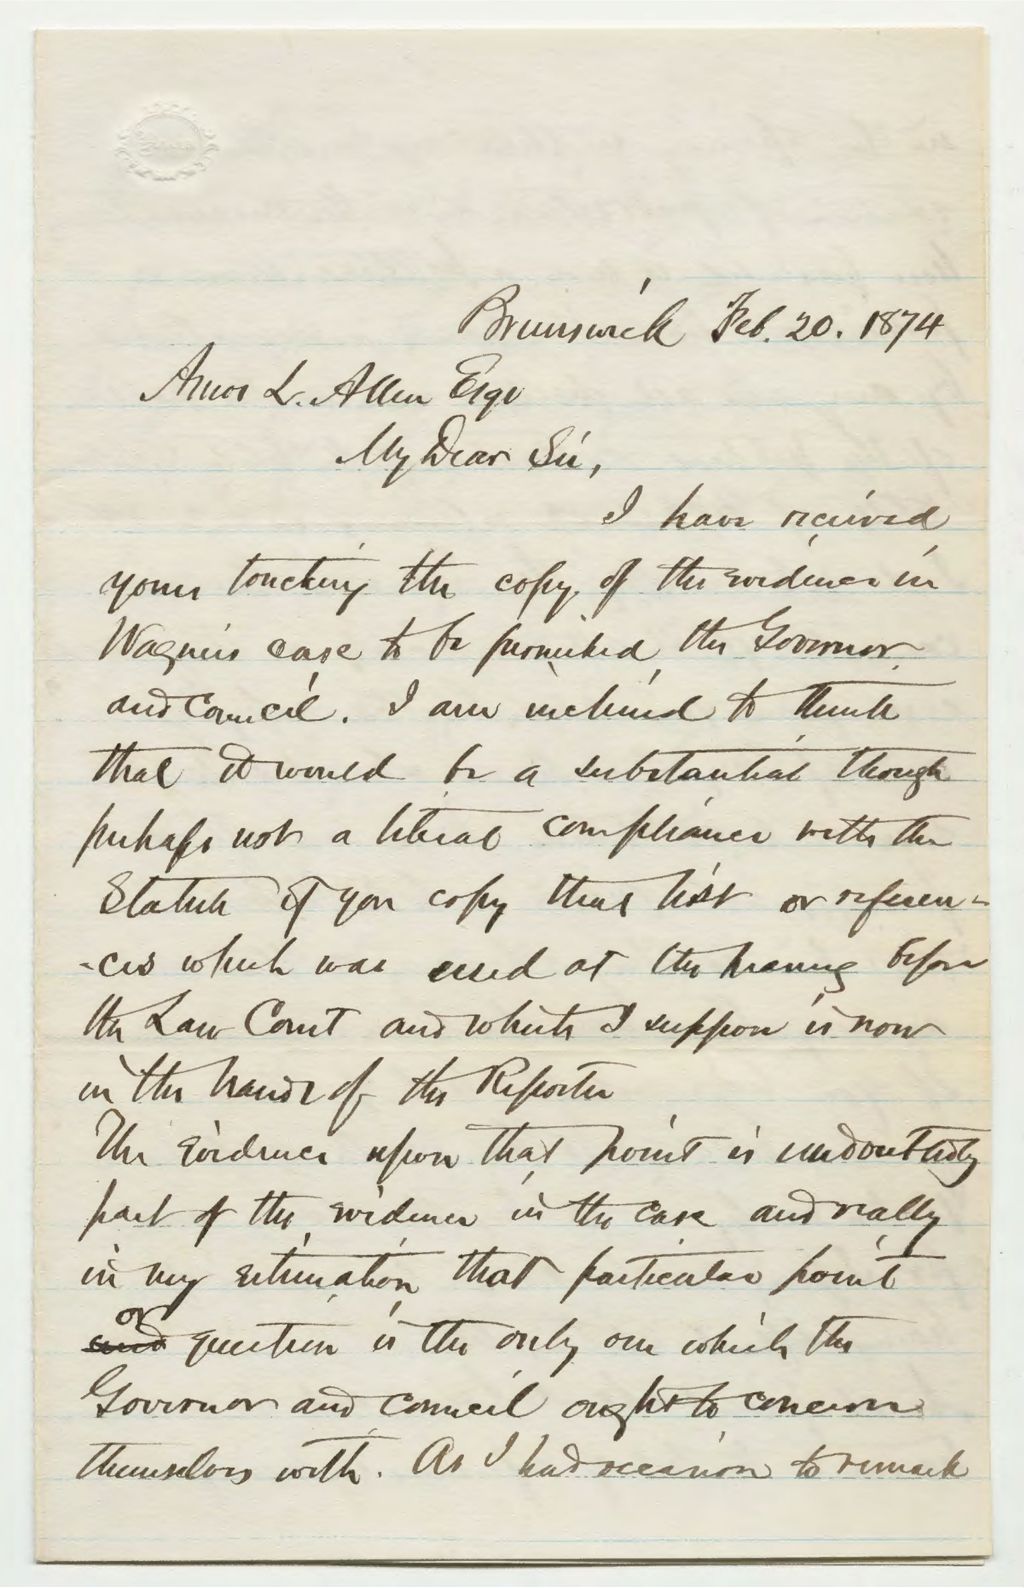 Brunswick Feb. 20. 1874
Amos L. Allen Esqr
My Dear Sir,
I have received
yours touching the copy of the evidence in
Wagners case to be furnished the Governor
and Council. I am inclined to think
that it would be a substantial though
perhaps not a literal compliance with the
Statute if you copy that list or referen-
-ces which was used at the hearing before
the Law Court and which I suppose is now
in the hands of the Reporter
The evidence upon that point is undoubtedly
part of the evidence in the case and really
in my estimation that particular point
or
and question is the only one which the
Governor and Council ought to concern
themselves with. As I had occasion to remark